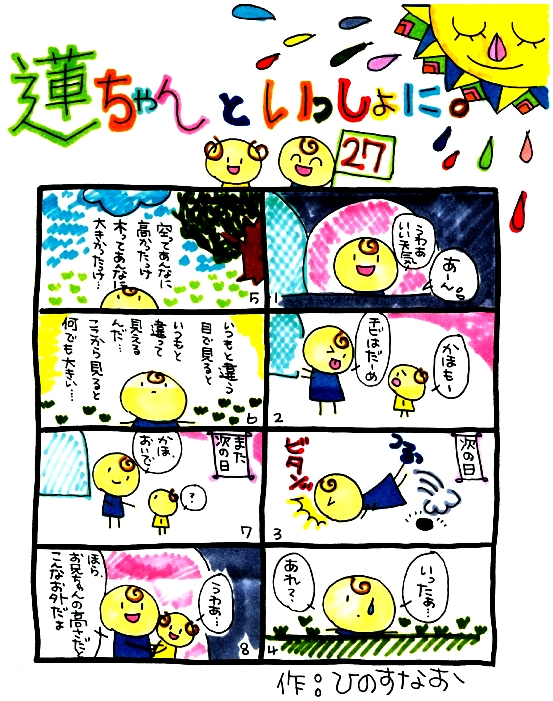 蓮ちゃんといっしょに。
27
うわぁ
いい天気!
あーん。
1
かほもー
チビはだーめ
2
次の日
つるっ
ビタンッ
3
いったぁ…
あれ?
4
空ってあんなに
高かったっけ
木ってあんなに
大きかったっけ…
5
いつもと違う
目で見ると
いつもと
違って
見える
んだ…
ここから見ると
何でも大きい…
6
また
次の日
かほ、
おいで。
?
7
うわぁ…
ほら、
お兄ちゃんの高さだと
こんなお外だよ
8
作:ひのすなお